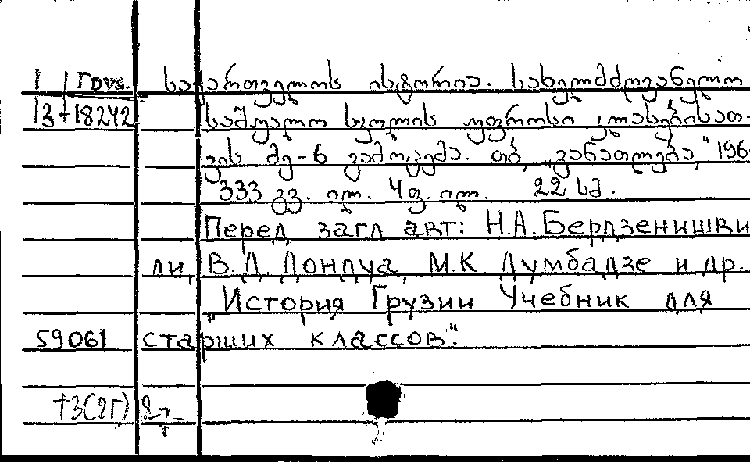 1 Груз. საქართველოს ისტორია. სახელმძღვანელო
13-18242 საშუალო სკოლის უფროსი კლასებისათ-
ვის მე-6 გამოცემა. თბ, „განათლება," 196
333 გვ. ილ. 4 ფ. ილ. 22 სმ.
Перед загл авт: Н.А.Бердзенишви
ли, В.Д. Дондуа, М.К Думбадзе и др.
„История Грузии Учебник для
59061 старших классов".
+3(2Г)